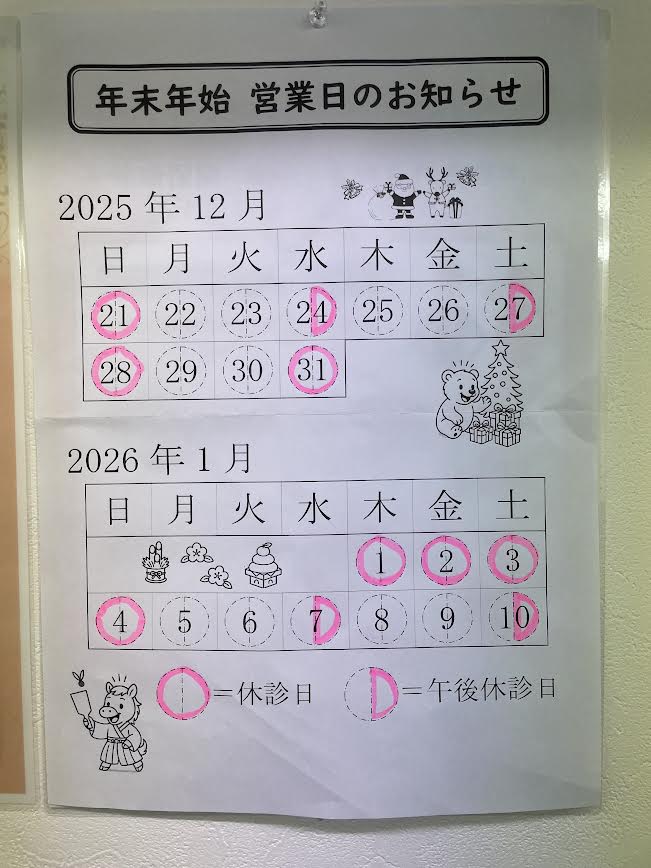 年末年始 営業日のお知らせ
2025年12月
日 月 火 水 木 金 土
21 22 23 24 25 26 27
28 29 30 31
2026年1月
日 月 火 水 木 金 土
1 2 3
4 5 6 7 8 9 10
=休診日 =午後休診日